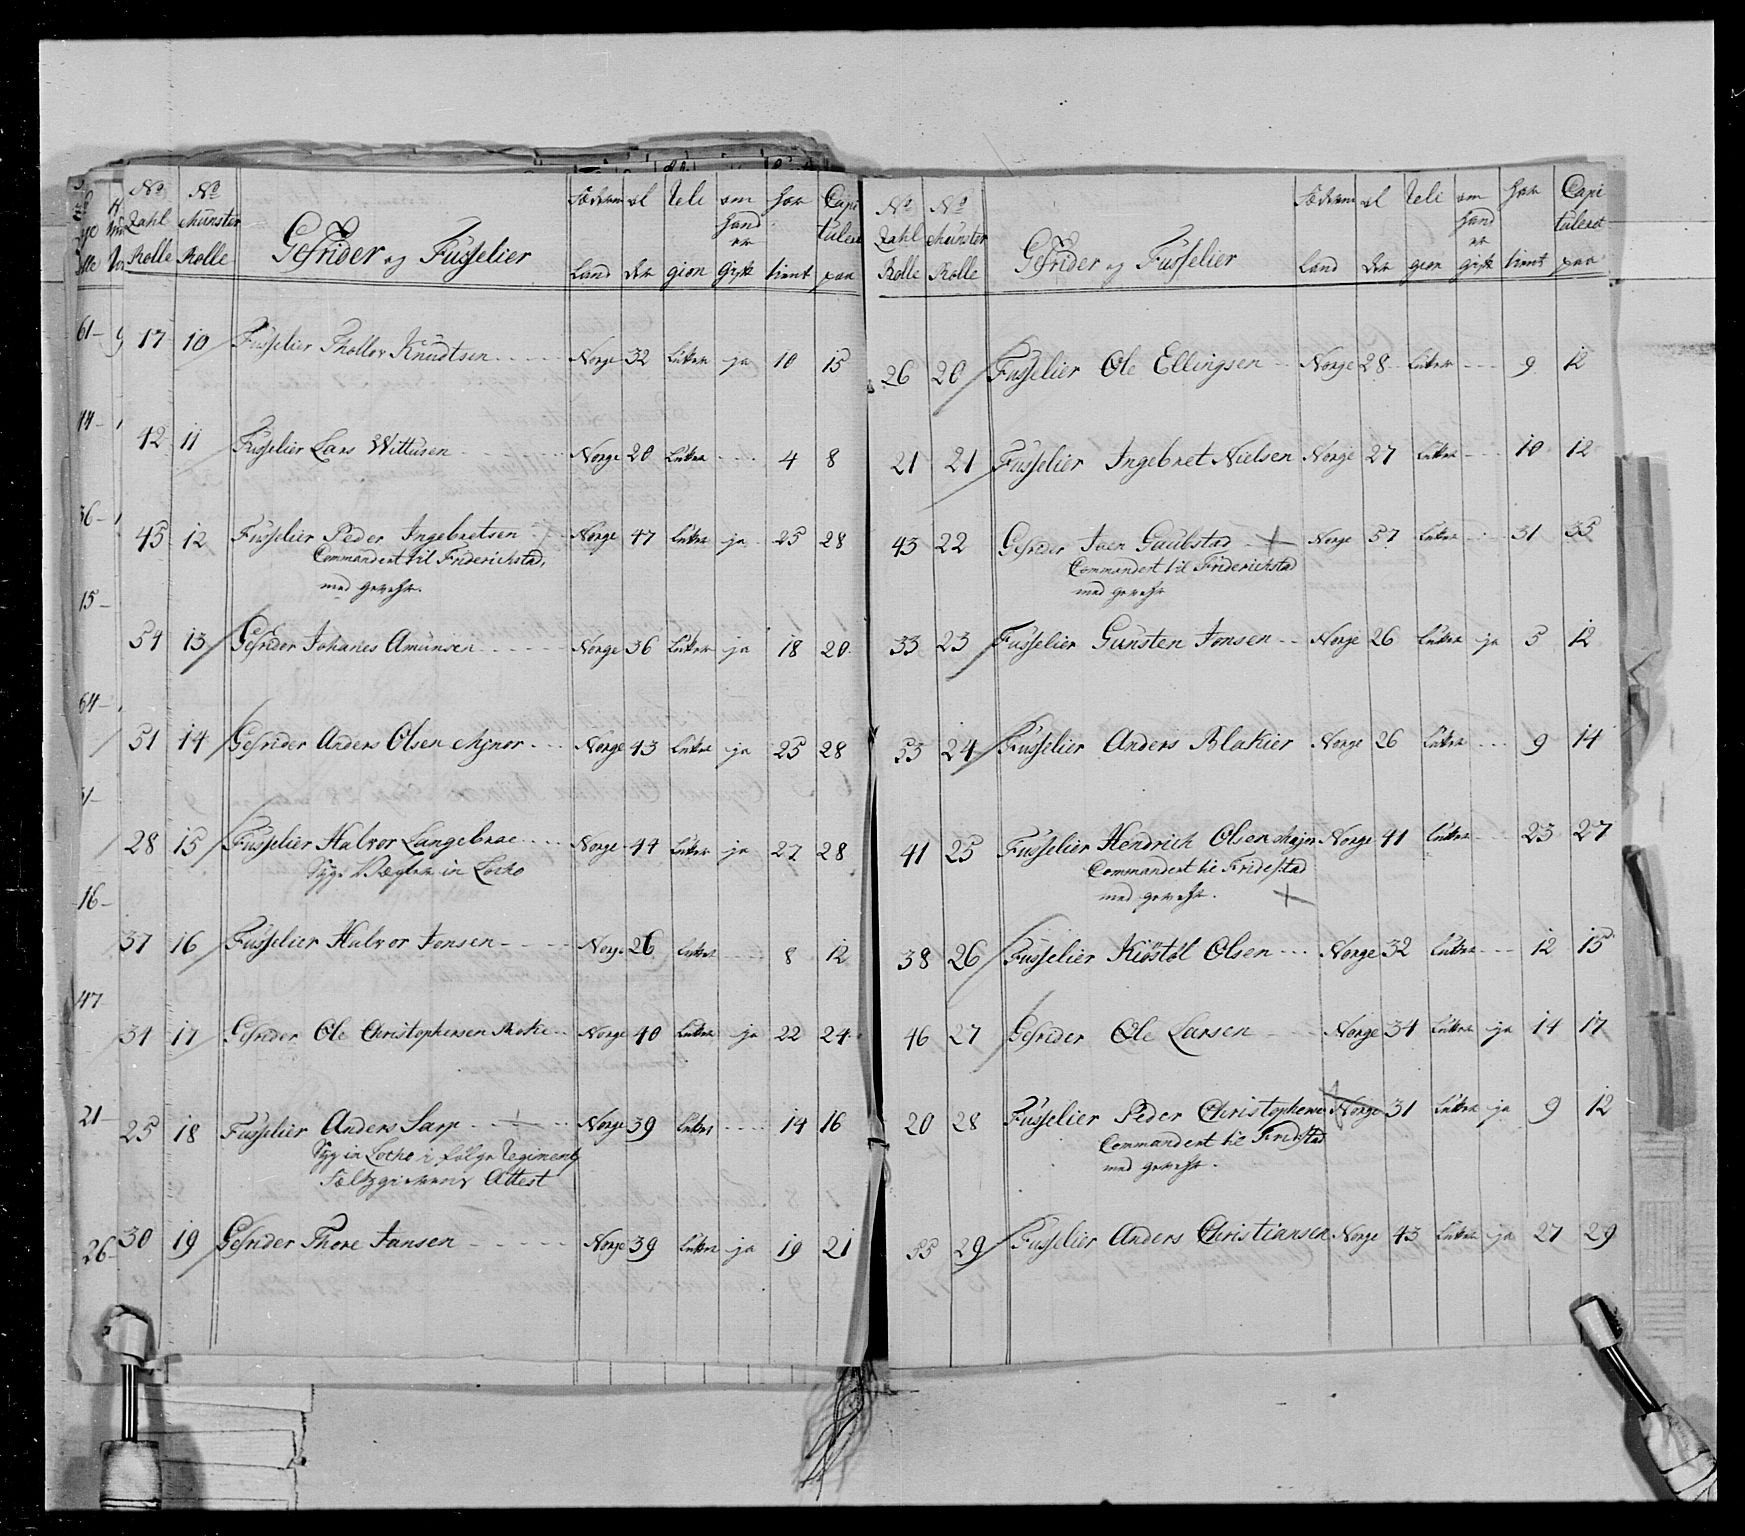 No Zahl Rolle | No Münster Rolle | Gefrider og Füsselier | Fæderne Land | al der | Reli gion | om hand er gift | har tient | Capi tulert paa
17 10 Füsselier Thollov Knudtsen Norge 32 Luther ja 10 15
42 11 Füsselier Lars Wittusen Norge 20 Luther 4 8
45 12 Füsselier Peder Ingebretsen Norge 47 Luther ja 25 28
Commandert til Friderichstad,
med gevehr.
54 13 Gefrider Johanes Amunsen Norge 36 Luther ja 18 20
51 14 Gefrider Anders Olsen Mynor Norge 43 Luther ja 25 28
28 15 Füsselier Halvor Langebrae Norge 44 Luther ja 27 28
Syg in Locho
37 16 Füsselier Halvor Jonsen Norge 26 Luther 8 12
34 17 Gefrider Ole Christophersen Norge 40 Luther ja 22 24
25 18 Füsselier Anders Sarp Norge 39 Luther 14 16
Syg in Locho i følge Regiments
Attest
30 19 Gefrider Thore Jansen Norge 39 Luther ja 19 21
61
44
36
15
64
16
47
21
26
No Zahl Rolle | No Münster Rolle | Gefrider og Füsselier | Fæderne Land | al der | Reli gion | om hand er gift | har tient | Capi tulerat paa
26 20 Füsselier Ole Ellingsen Norge 28 Luther 9 12
21 21 Füsselier Ingebret Nielsen Norge 27 Luther 10 12
43 22 Gefrider Joen Gaubstad Norge 57 Luther 31 35
Commandert til Friderichstad
med gevehr
33 23 Füsselier Gunsten Jonsen Norge 26 Luther ja 5 12
53 24 Füsselier Anders Blakier Norge 26 Luther 9 14
41 25 Füsselier Hendrich Olsen Norge 41 Luther 23 27
Commandert til Fridestad
med gevehr.
38 26 Füsselier Kiöstöl Olsen Norge 32 Luther 12 15
46 27 Gefrider Ole Larsen Norge 34 Luther ja 14 17
20 28 Füsselier Peder Christophersen Norge 31 Luther ja 9 12
Commandert til Fridstad
med gevehr.
55 29 Füsselier Anders Christiansen Norge 43 Luther ja 27 29